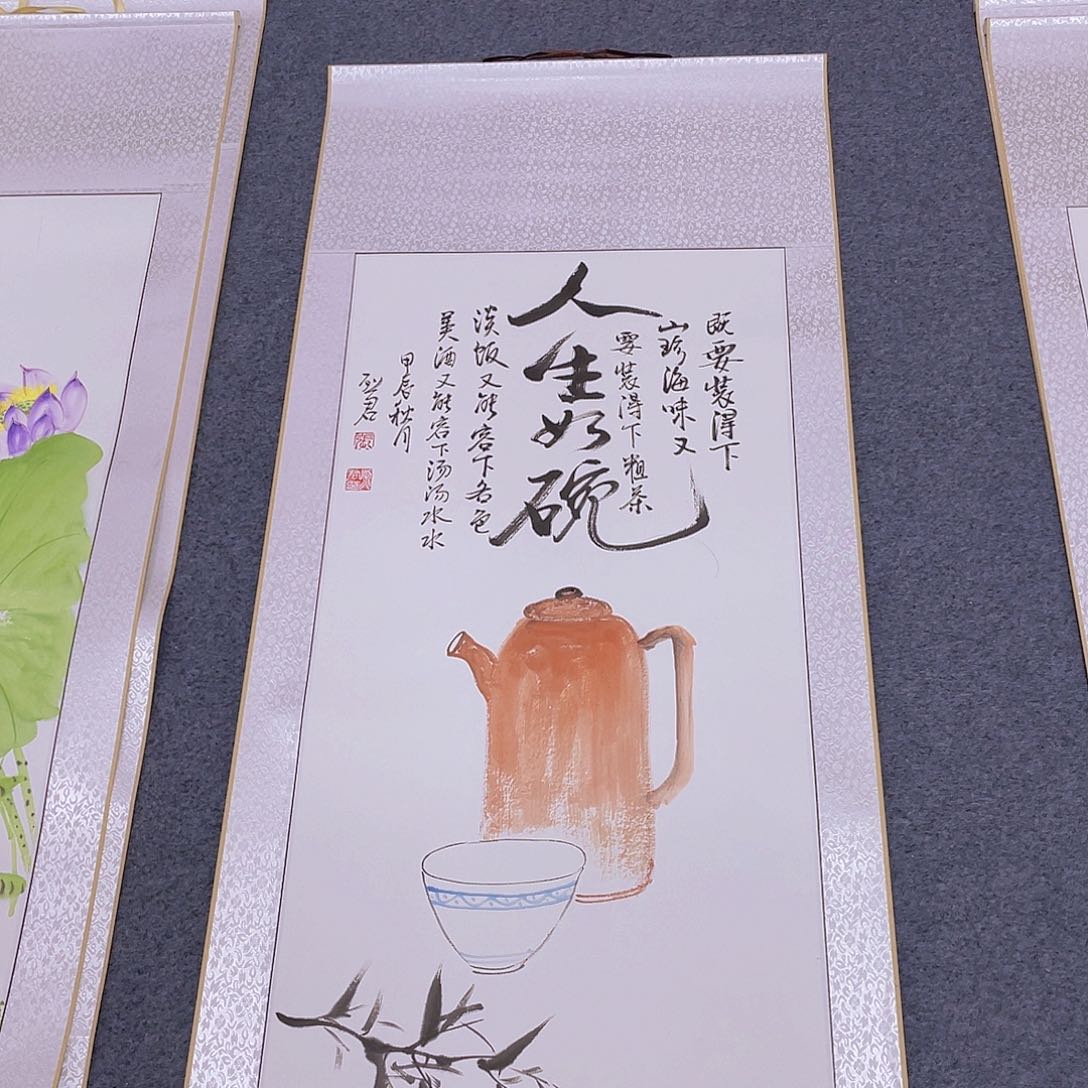 人生如碗
既要装得下
山珍海味又
要装得下粗茶
淡饭又能容下各色
美酒又能容下汤汤水水
甲辰秋月